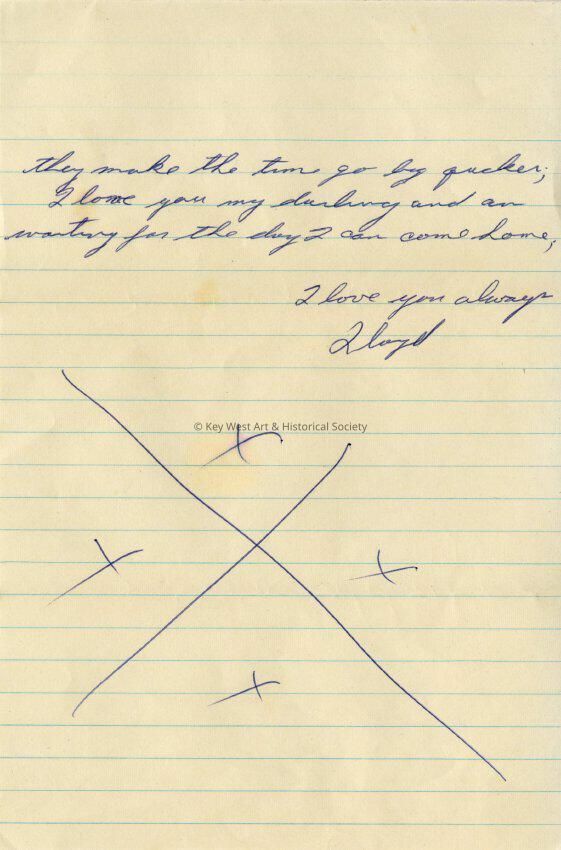 they make the time go by quicker,
I love you my darling and am
waiting for the day I can come home,
I love you always
Lloyd
© Key West Art & Historical Society
X
X X
X
X